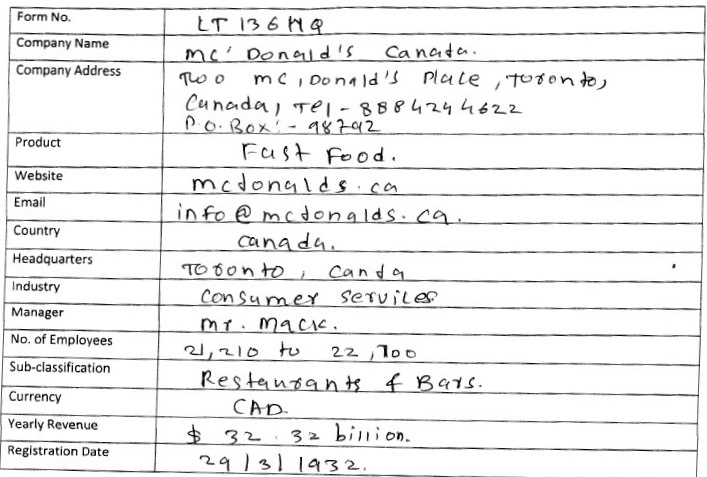 Form No. LT 136 HQ
Company Name Mc' Donald's Canada.
Company Address Two Mc, Donald's Place, Toronto,
Canada, Tel - 8884244622
P.O. Box :- 98742
Product Fast Food.
Website mcdonalds.ca
Email info@mcdonalds.ca.
Country Canada.
Headquarters Toronto, Canda
Industry Consumer Services
Manager Mr. Mack.
No. of Employees 21,210 to 22,700
Sub-classification Restaurants & Bars.
Currency CAD
Yearly Revenue $ 32.32 billion.
Registration Date 29/3/1932.